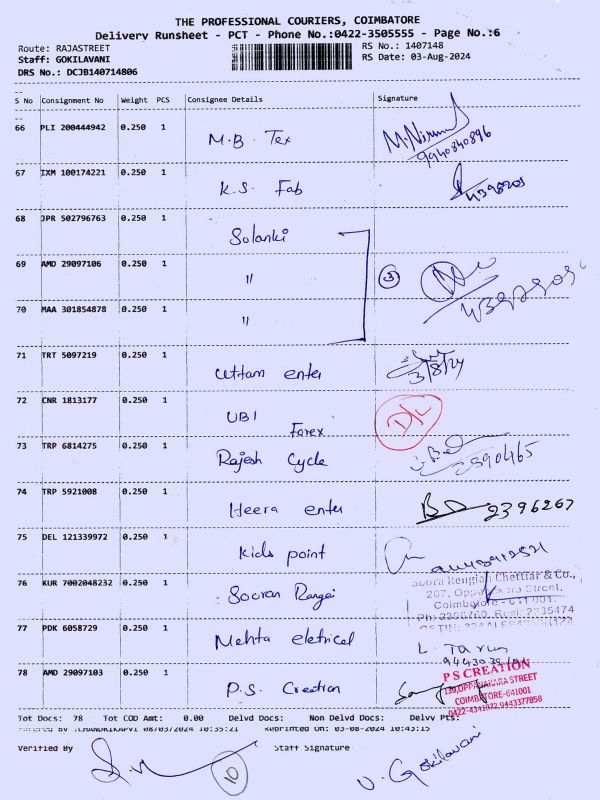 THE PROFESSIONAL COURIERS, COIMBATORE
Delivery Runsheet - PCT - Phone No.:0422-3505555 - Page No.:6
Route: RAJASTREET RS No.: 1407148
Staff: GOKILAVANI RS Date: 03-Aug-2024
DRS No.: DCJB140714806
S No Consignment No Weight PCS Consignee Details Signature
66 PLI 200444942 0.250 1 M.B. Tex M.Nirmal
9940840896
67 IXM 100174221 0.250 1 K.S. Fab
68 JPR 502796763 0.250 1 Solanki
69 AMD 29097106 0.250 1 " 3
70 MAA 301854878 0.250 1 "
71 TRT 5097219 0.250 1 Uttam enter 3/8/24
72 CNR 1813177 0.250 1 UBI Forex D/L
73 TRP 6814275 0.250 1 Rajesh Cycle 2390465
74 TRP 5921008 0.250 1 Heera enter 2396267
75 DEL 121339972 0.250 1 Kids point
76 KUR 7002048232 0.250 1 Sooran Rangai
Soora Rengiah Chettiar & Co.,
207, Oppanakara Street,
Coimbatore - 641 001.
77 PDK 6058729 0.250 1 Mehta eletrical L. Tarun
78 AMD 29097103 0.250 1 P.S. Creation
P S CREATION
139,OPPANAKARA STREET
COIMBATORE-641001
0422-4341972,9443377858
Tot Docs: 78 Tot COD Amt: 0.00 Delvd Docs: Non Delvd Docs: Delvy Pts:
Reprinted On: 03-08-2024 10:45:15
Verified By Staff Signature
10 V. Gokilavani